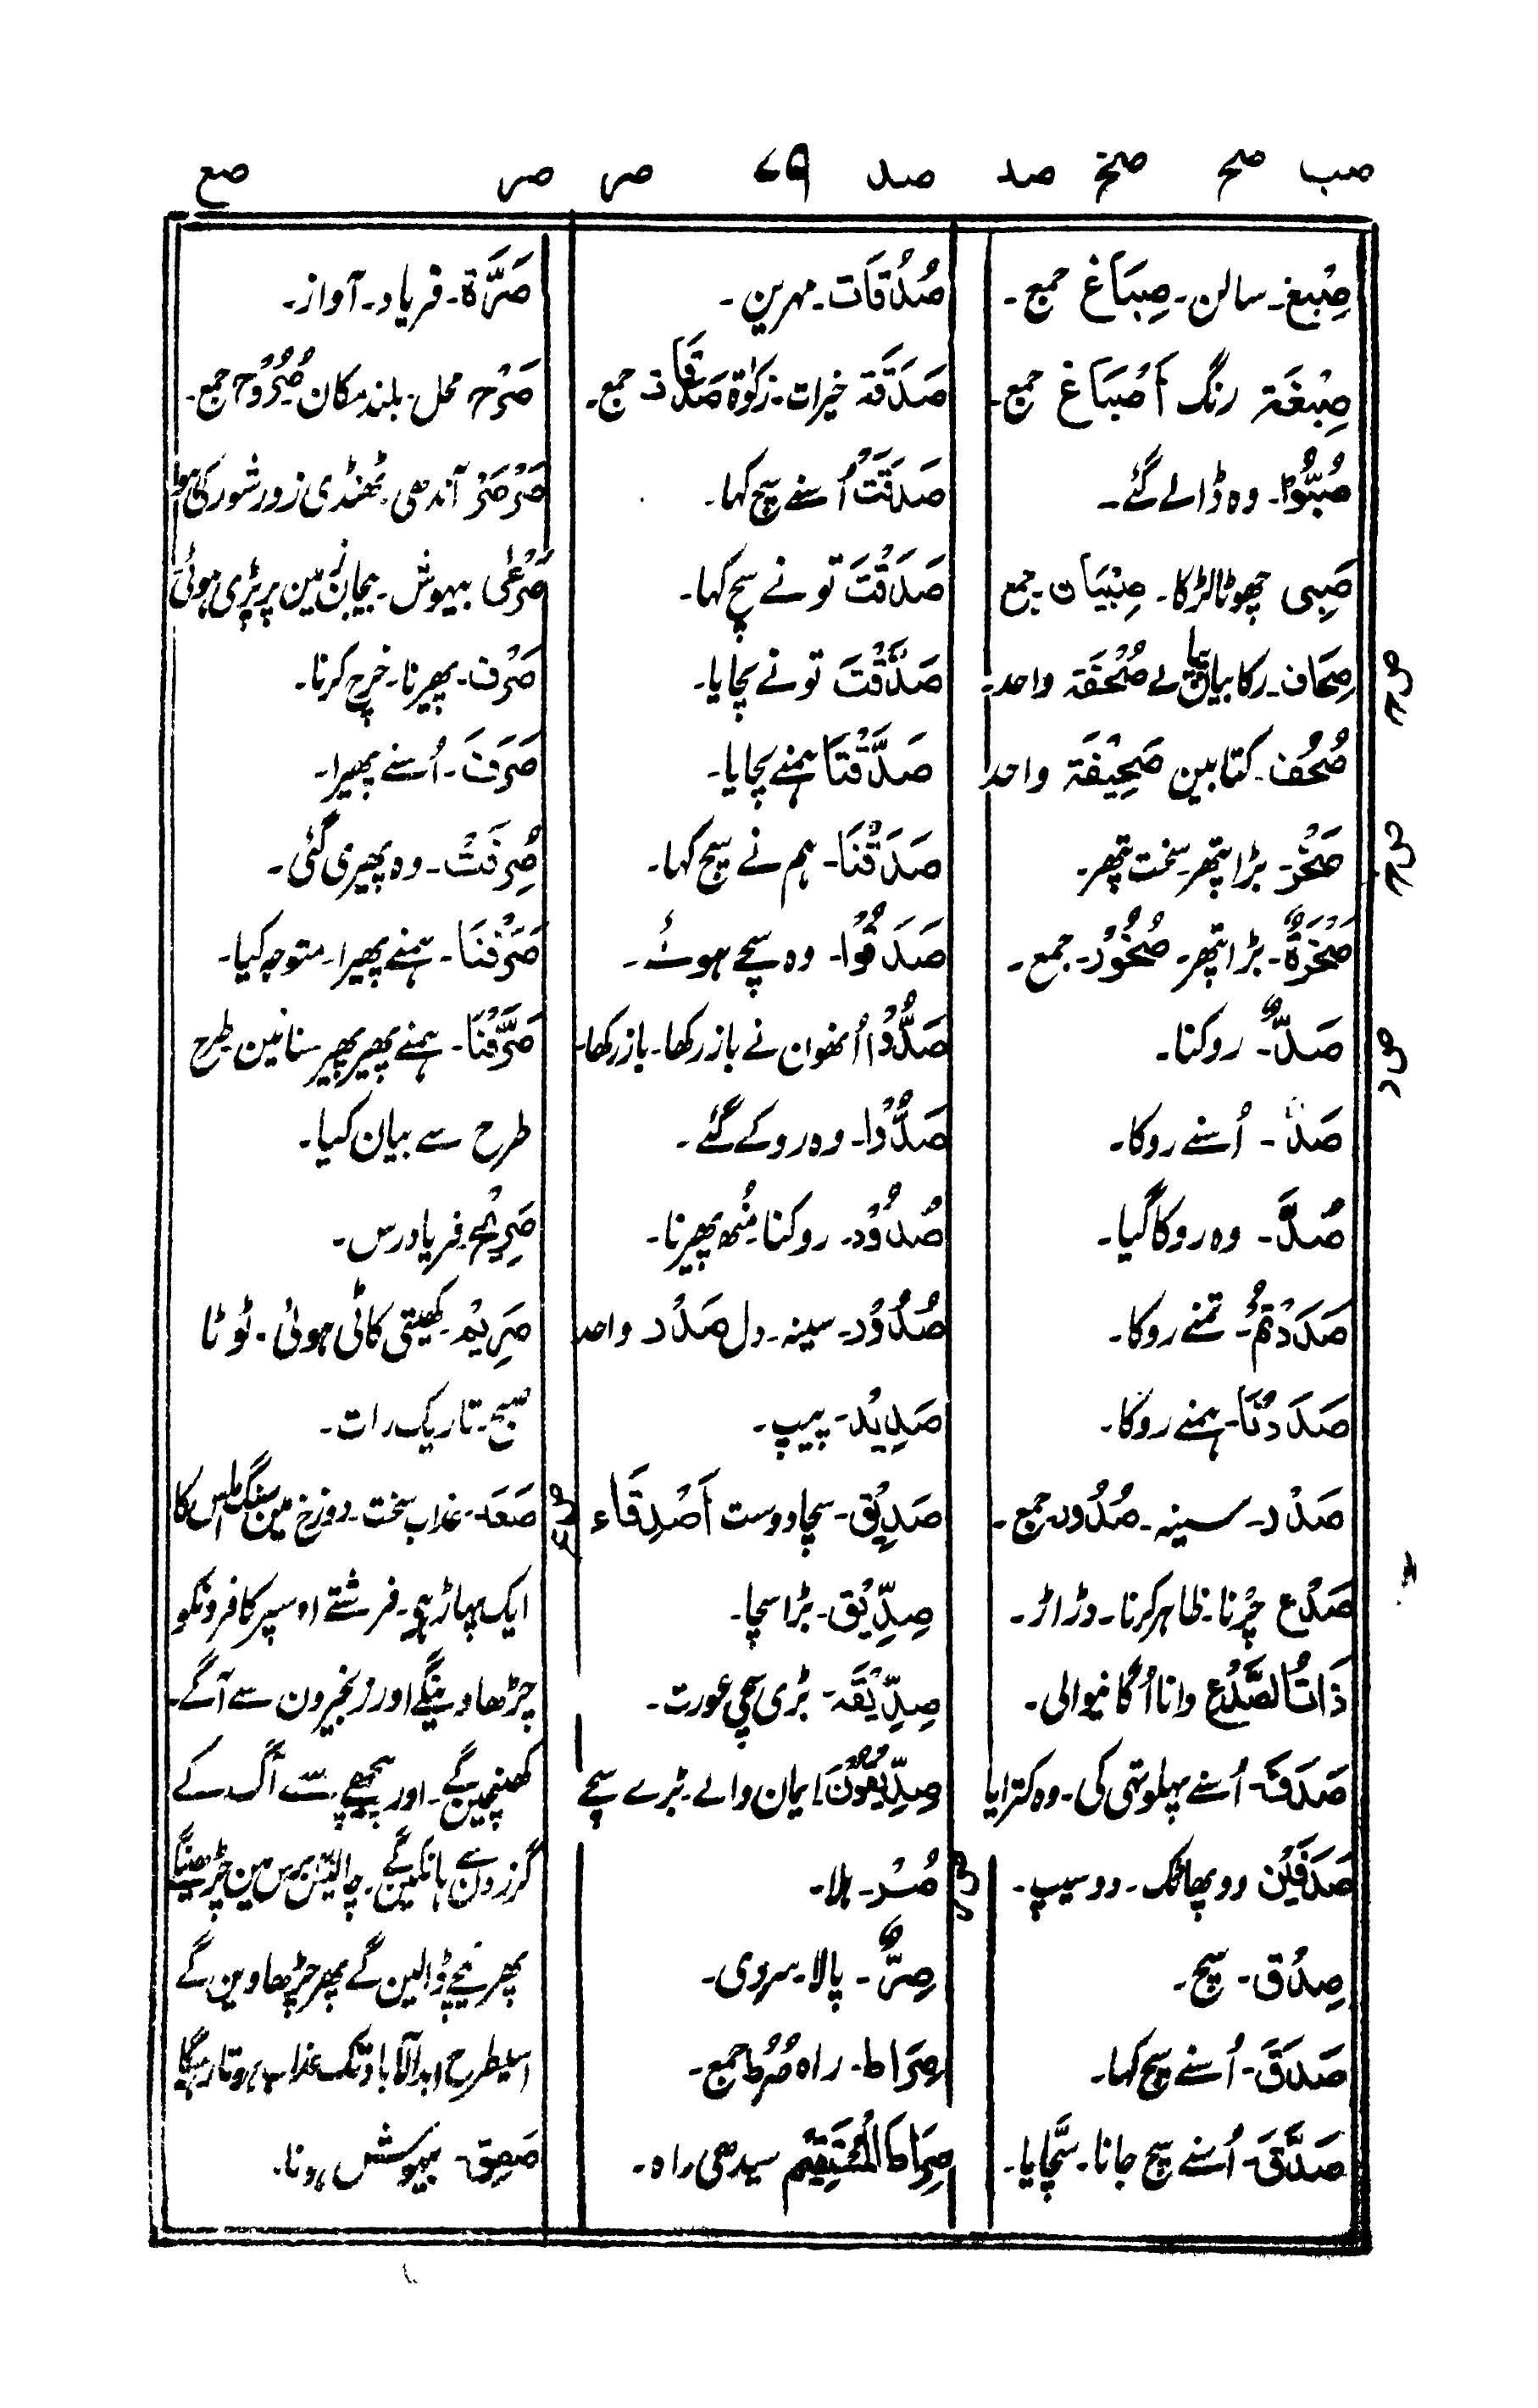 صب صح صخ صد صد ۷۹ صر صر صع
صِبْغ۔ سالن۔ صِبَاغ جمع۔
صِبْغَة رنگ أَصْبَاغ جمع۔
صُبُّوا۔ وہ ڈالے گئے۔
صَبِی چھوٹا لڑکا۔ صِبْیَان جمع
صِحَاف۔ رکابیان پیالے صُحْفَة واحد۔
صح
صُحُف۔ کتابین صَحِیْفَة واحد
صَخْر۔ بڑا پتھر۔ سخت پتھر۔
صخ
صَخْرَةٌ۔ بڑا پتھر۔ صُخُوْر۔ جمع۔
صَدٌّ۔ روکنا۔
صد
صَدَّ۔ اُسنے روکا۔
صُدَّ۔ وہ روکا گیا۔
صَدَدْتُمْ۔ تمنے روکا۔
صَدَدْنَا۔ ہمنے روکا۔
صَدْر۔ سینہ۔ صُدُور جمع۔
صَدْع چرنا۔ ظاہر کرنا۔ دڑاڑ۔
ذَاتُ الصَّدْعِ دانا اُگانیوالی۔
صَدَفَ۔ اُسنے پہلوتہی کی۔ وہ کترایا
صَدَفَیْن دو پھاٹک۔ دو سیپ۔
صِدْق۔ سچ۔
صَدَقَ۔ اُسنے سچ کہا۔
صَدَّقَ۔ اُسنے سچ جانا۔ سچّایا۔
صُدُقَات۔ مہرین۔
صَدَقَة خیرات۔ زکوٰة صَدَقَات جمع۔
صَدَقَتْ اُسنے سچ کہا۔
صَدَقْتَ تو نے سچ کہا۔
صَدَّقْتَ تو نے سچایا۔
صَدَّقْتَا ہمنے سچایا۔
صَدَقْنَا۔ ہم نے سچ کہا۔
صَدَقُوْا۔ وہ سچے ہوئے۔
صَدُّوْا اُنھون نے باز رکھا۔ باز رکھا۔
صُدُّوْا۔ وہ روکے گئے۔
صُدُوْد۔ روکنا۔ مُنھ پھیرنا۔
صُدُوْر۔ سینہ۔ دل صَدْر واحد
صَدِیْد۔ پیپ۔
صَدِیْق۔ سچا دوست أَصْدِقَاء
صِدِّیْق۔ بڑا سچا۔
صِدِّیْقَہ۔ بڑی سچی عورت۔
صِدِّیْقُوْنَ ایمان والے۔ بڑے سچے
صُرْ۔ ہلا۔
صر
صِرٌّ۔ پالا۔ سردی۔
صِرَاط۔ راہ صُرُط جمع۔
صِرَاطَ الْمُسْتَقِیْم سیدھی راہ۔
صَرَّة۔ فریاد۔ آواز۔
صَرْح محل۔ بلند مکان صُرُوْح جمع۔
صَرْصَر آندھی۔ ٹھنڈی زور شور کی ہوا
صَرْعٰی بیہوش۔ بیجان زمین پر پڑی ہوئی
صَرْف۔ پھیرنا۔ خرچ کرنا۔
صَرَفَ۔ اُسنے پھیرا۔
صُرِفَتْ۔ وہ پھیری گئی۔
صَرَفْنَا۔ ہمنے پھیرا۔ متوجہ کیا۔
صَرَّفْنَا۔ ہمنے پھیر پھیر سنائین طرح
طرح سے بیان کیا۔
صَرِیْخ۔ فریادرس۔
صَرِیْم۔ کھیتی کاٹی ہوئی۔ ٹوٹا
صبح۔ تاریک رات۔
صَعَد۔ عذاب سخت۔ دوزخ مین سنگ املس کا
صع
ایک پہاڑ ہے۔ فرشتے اوسپر کافرونکو
چڑھا دینگے اور زنجیرون سے آگے۔
کھنچین گے۔ اور پیچھے سے آگ کے
گرزون سے ہانکین گے۔ چالیس برس مین چڑھینگے
پھر نیچے ڈالین گے پھر چڑھاوین گے
اسیطرح ابدالآباد تک عذاب ہوتا رہیگا
صَعِق۔ بیہوش ہونا۔